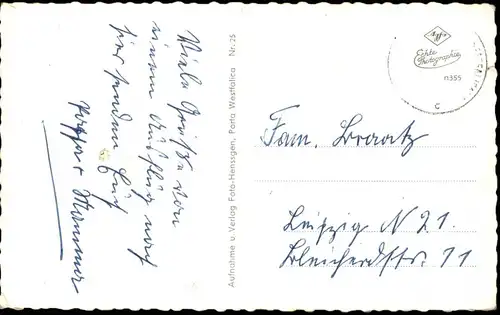 Viele Grüße von
einem Ausflug nach
hier senden Euch
Pappa + Mamma
Aufnahme u. Verlag Foto-Henssgen, Porta Westfalica Nr. 25
Agfa
Echte
Photographie
n355
C
Fam. Braatz
Leipzig N 21.
Bleichardtstr. 11